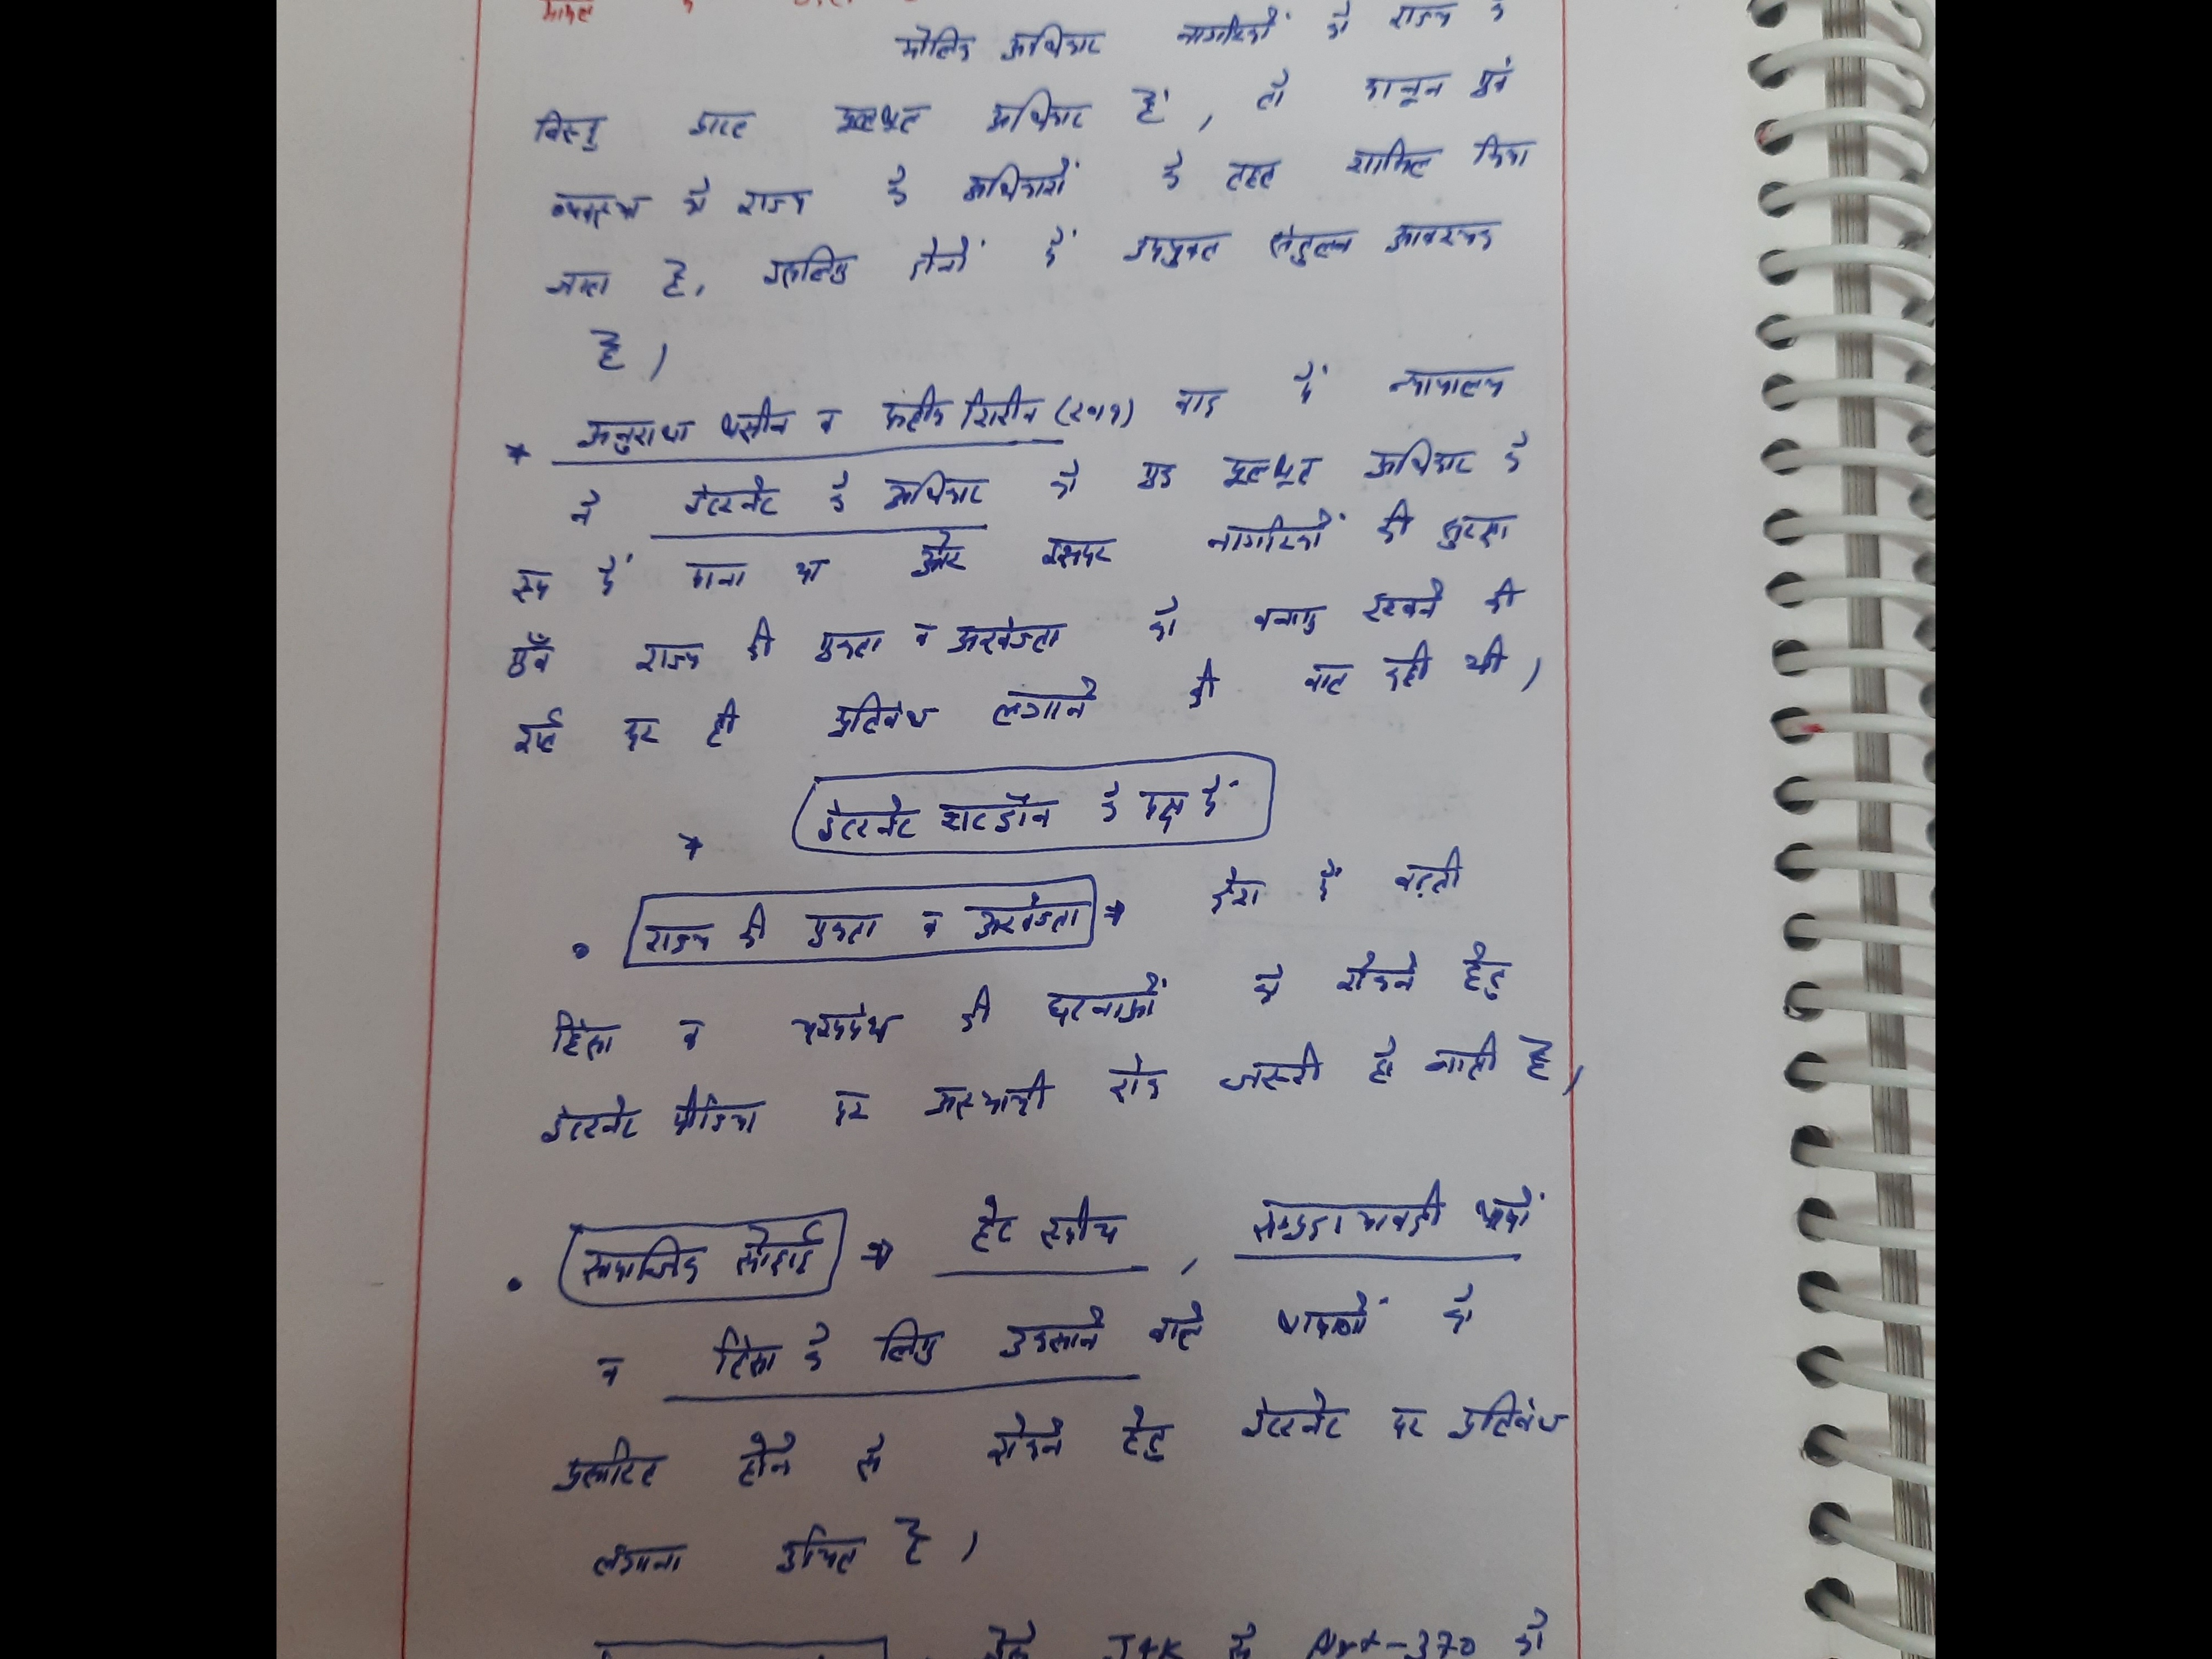 मौलिक अधिकार नागरिकों को राज्य के
विरुद्ध प्राप्त मूलभूत अधिकार हैं, तो कानून एवं
व्यवस्था को राज्य के अधिकारों के तहत शामिल किया
जाता है, इसलिए दोनों में उपयुक्त संतुलन आवश्यक
है,
* अनुराधा भसीन व फहीमा शिरीन वाद में न्यायालय
ने इंटरनेट के अधिकार को एक मूलभूत अधिकार के
रूप में माना था और इसपर नागरिकों की सुरक्षा
एवँ राज्य की एकता व अखंडता को बनाए रखने की
शर्त पर ही प्रतिबंध लगाने की बात कही थी,
* इंटरनेट शटडॉन के पक्ष में
• राज्य की एकता व अखंडता → देश में बढ़ती
हिंसा व की घटनाओं को रोकने हेतु
इंटरनेट मीडिया पर अस्थायी रोक जरूरी हो जाती है,
• सामाजिक सौहार्द → हेट स्पीच, भावों
व हिंसा के लिए उकसाने वाले भाषणों को
प्रसारित होने से रोकने हेतु इंटरनेट पर प्रतिबंध
लगाना उचित है,
जैसे J&K से Art-370 को